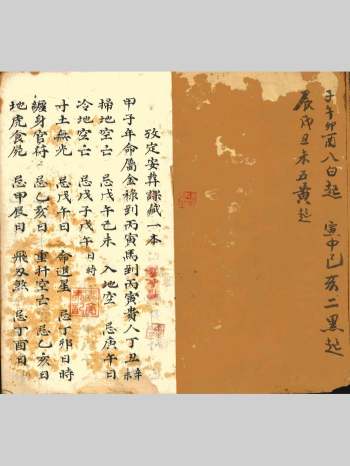 子午卯酉八白起 寅申巳亥二黑起
辰戌丑未五黃起
攷定安葬課筬一本
甲子年命屬金祿到丙寅馬到丙寅貴人丁丑辛未
掃地空亡 忌戊午己未 入地空 忌庚午日
冷地空亡 忌戊子戊午日時
寸土無光 忌戊午日 命退星 忌丁卯日時
纏身官符 忌乙亥日 重扦空亡 忌乙亥日
地虎食屍 忌甲辰日 飛刃煞 忌丁酉日